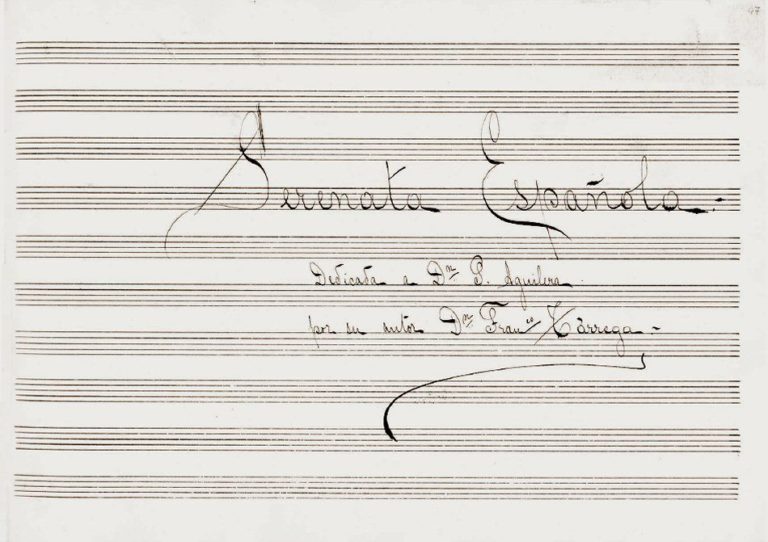 47
Serenata Española.-
Dedicada a Dn. P. Aguilera.
por su autor Dn. Franco Tárrega.-